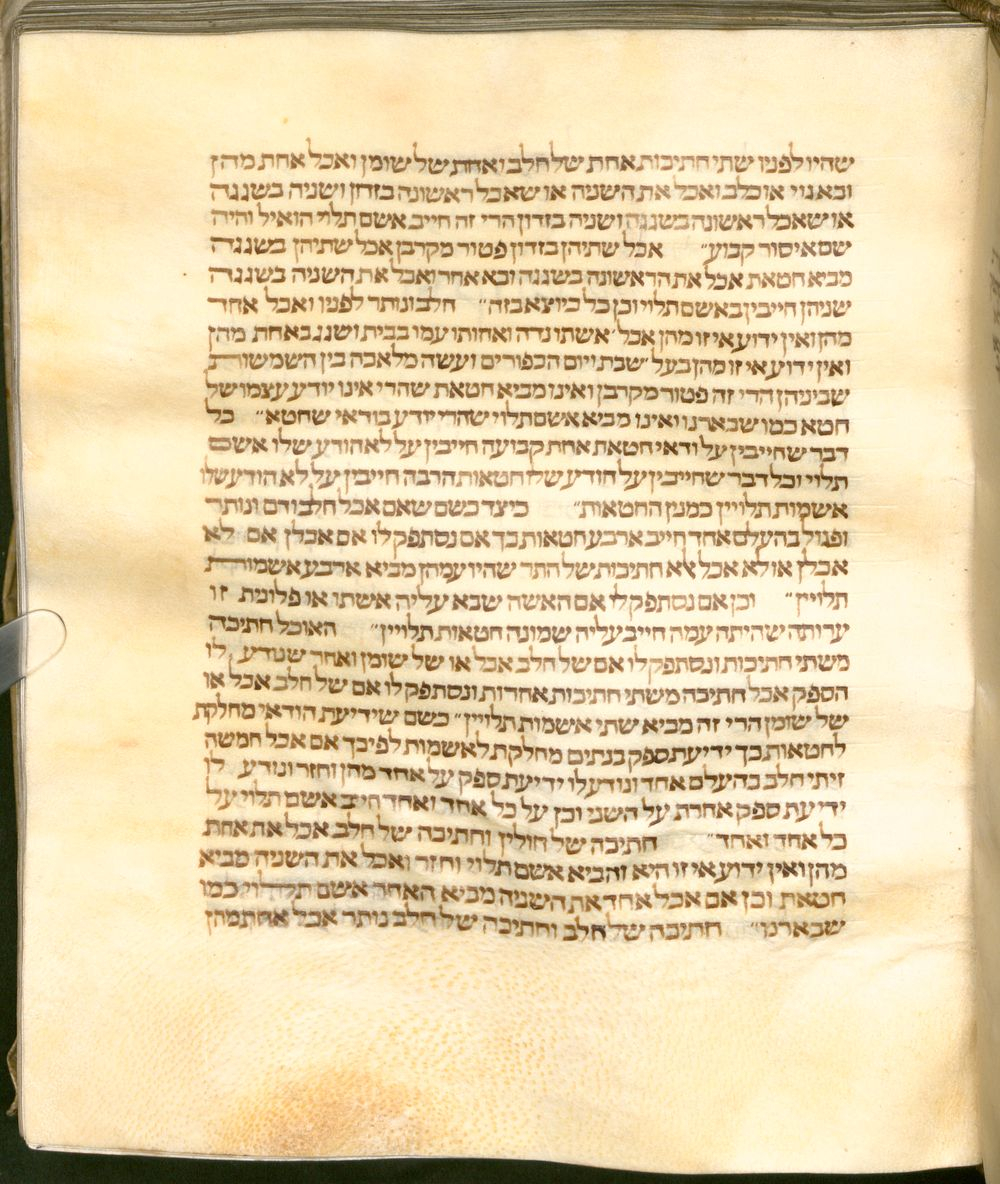 שהיו לפניו שתי חתיכות אחת של חלב ואחת של שומן ואכל אחת מהן
ובא גוי או כלב ואכל את השניה או שאכל ראשונה בזדון ושניה בשגגה
או שאכל ראשונה בשגגה ושניה בזדון הרי זה חייב אשם תלוי הואיל והיה
שם איסור קבוע״ אכל שתיהן בזדון פטור מקרבן אכל שתיהן בשגגה
מביא חטאת אכל את הראשונה בשגגה ובא אחר ואכל את השניה בשגגה
שניהן חייבין באשם תלוי וכן כל כיוצא בזה״ חלב ונותר לפניו ואכל אחד
מהן ואין ידוע אי זו מהן אכל׳ אשתו נדה ואחותו עמו בבית ושגג באחת מהן
ואין ידוע אי זו מהן בעל״ שבת ויום הכפורים ועשה מלאכה בין השמשות
שביניהן הרי זה פטור מקרבן ואינו מביא חטאת שהרי אינו יודע עצמו של
חטא כמו שבארנו ואינו מביא אשם תלוי שהרי יודע בודאי שחטא״ כל
דבר שחייבין על ודאי חטאת אחת קבועה חייבין על לא הודע שלו אשם
תלוי וכל דבר שחייבין על הודע שלו חטאות הרבה חייבין על לא הודע שלו
אשמות תלויין כמנין החטאות״ כיצד כשם שאם אכל חלב ודם ונותר
ופגול בהעלם אחד חייב ארבע חטאות כך אם נסתפק לו אם אכלן אם לא
אכלן או לא אכל אלא חתיכות של התר שהיו עמהן מביא ארבע אשמות
תלויין״ וכן אם נסתפק לו אם האשה שבא עליה אשתו או פלונית זו
ערותה שהיתה עמה חייב עליה שמונה חטאות תלויין״ האוכל חתיכה
משתי חתיכות ונסתפק לו אם של חלב אכל או של שומן ואחר שנודע לו
הספק אכל חתיכה משתי חתיכות אחרות ונסתפק לו אם של חלב אכל או
של שומן הרי זה מביא שתי אשמות תלויין״ כשם שידיעת הודאי מחלקת
לחטאות כך ידיעת ספק בנתים מחלקת לאשמות לפיכך אם אכל חמשה
זיתי חלב בהעלם אחד ונודע לו ידיעת ספק על אחד מהן וחזר ונודע לו
ידיעת ספק אחרת על השני וכן על כל אחד ואחד חייב אשם תלוי על
כל אחד ואחד״ חתיכה של חולין וחתיכה של חלב אכל את אחת
מהן ואין ידוע אי זו היא והביא אשם תלוי וחזר ואכל את השניה מביא
חטאת וכן אם אכל אחד את השניה מביא האחר אשם תלוי כמו
שבארנו״ חתיכה של חלב וחתיכה של חלב נותר אכל אחת מהן